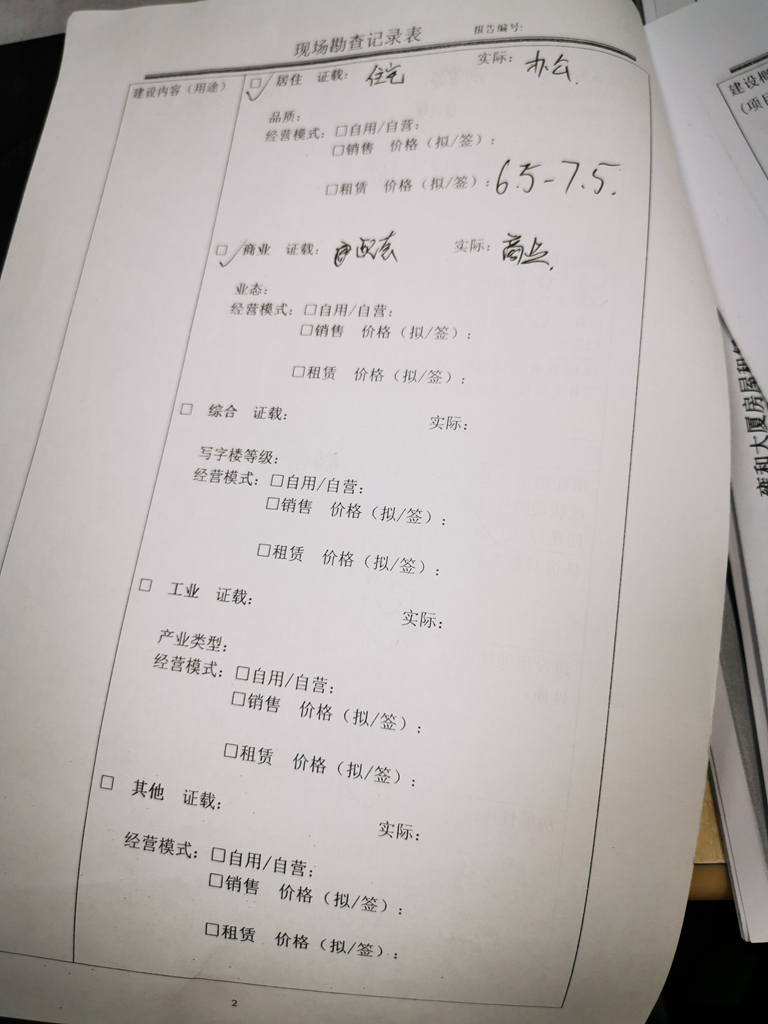 现场勘查记录表 报告编号:
建设内容(用途)
☑ 居住 证载: 住宅 实际: 办公.
品质:
经营模式: □自用/自营:
□销售 价格(拟/签):
□租赁 价格(拟/签): 6.5-7.5.
☑ 商业 证载: 实际:
业态:
经营模式: □自用/自营:
□销售 价格(拟/签):
□租赁 价格(拟/签):
□ 综合 证载: 实际:
写字楼等级:
经营模式: □自用/自营:
□销售 价格(拟/签):
□租赁 价格(拟/签):
□ 工业 证载: 实际:
产业类型:
经营模式: □自用/自营:
□销售 价格(拟/签):
□租赁 价格(拟/签):
□ 其他 证载: 实际:
经营模式: □自用/自营:
□销售 价格(拟/签):
□租赁 价格(拟/签):
2
建设概
(项目
雍和大厦房屋租